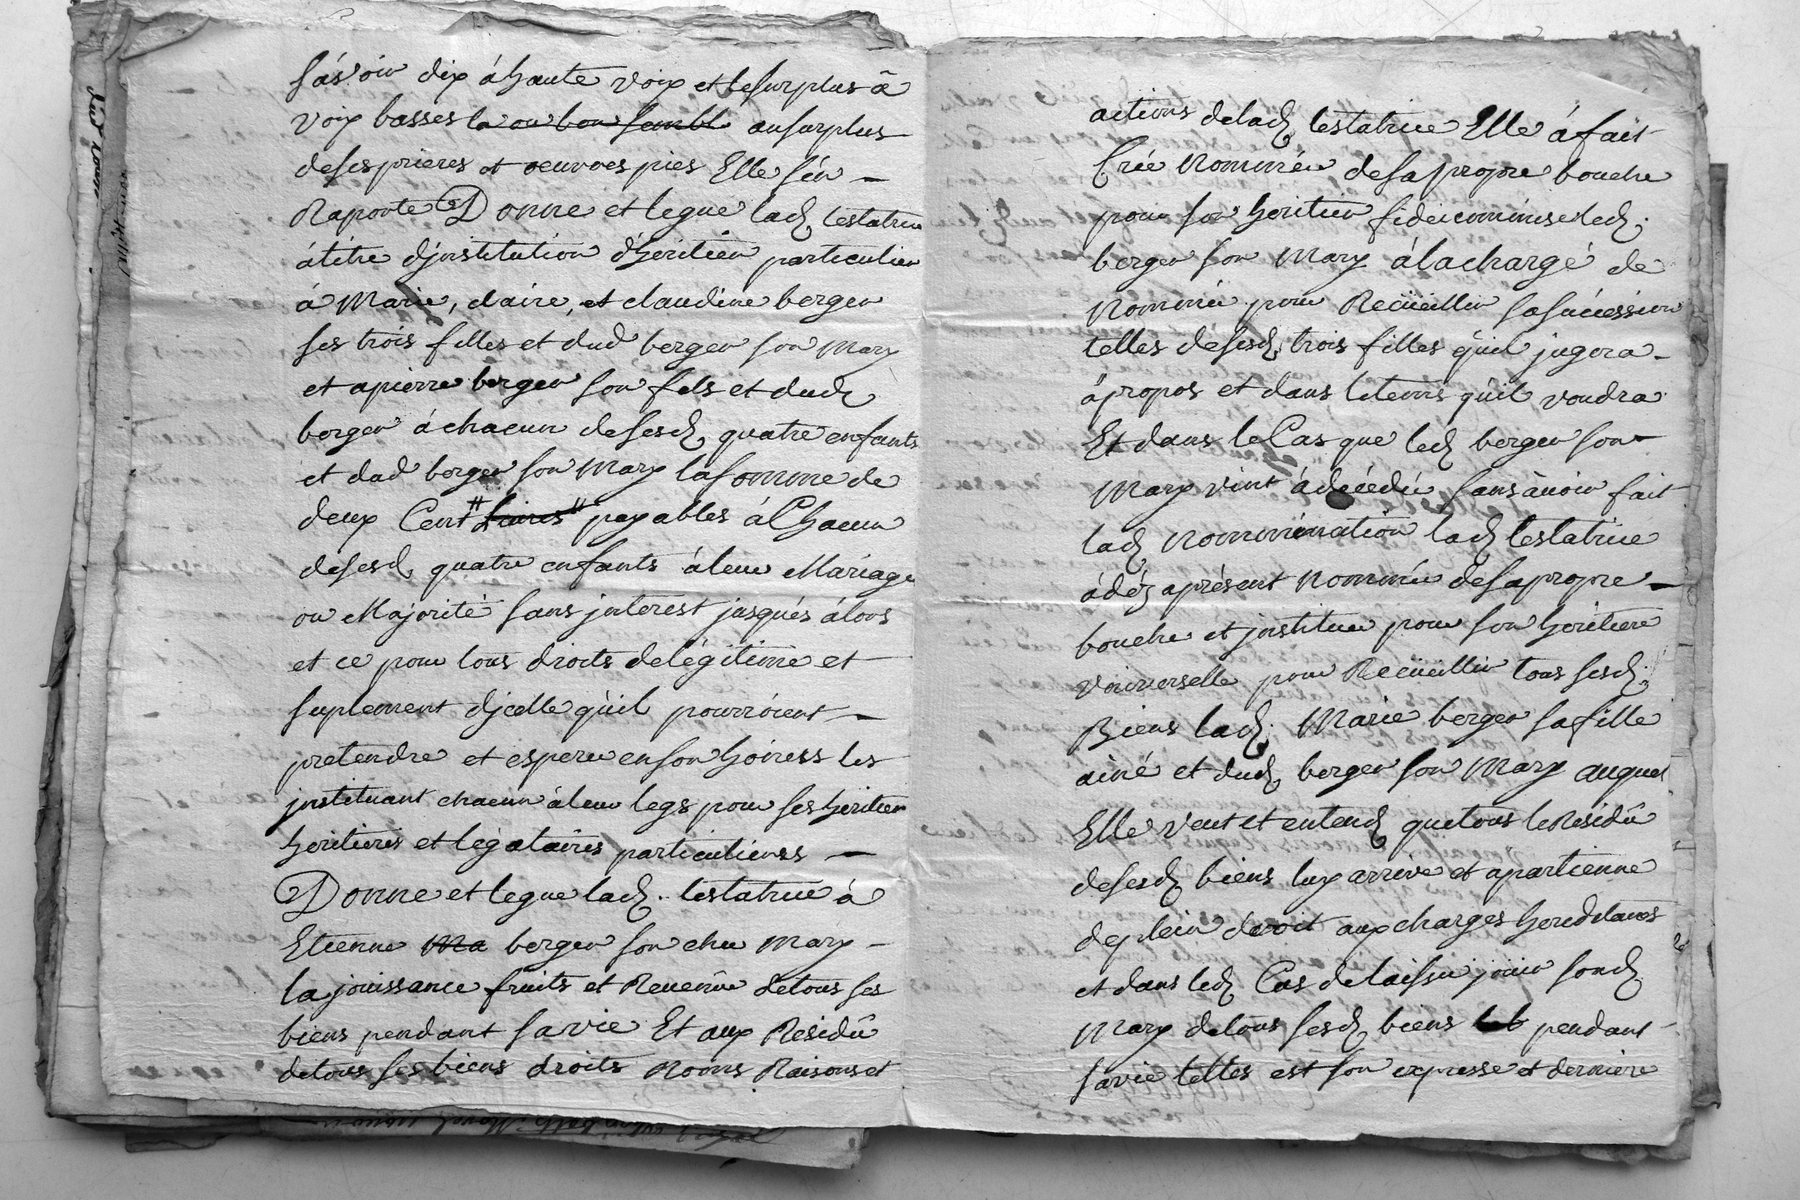 sávoir dix á haute voix et le surplus á
voix basses la ou bon sembl au surplus
de ses prieres et oeuvres pies Elle s'én
Raporte Donne et legue lad. testatrice
átitre d'institution d'héritier particulier
á Marie, claire, et claudine berger
ses trois filles et dud berger son mary
et a pierre berger son fils et dud.
berger á chacun de sesd. quatre enfants
et dud berger son mary la somme de
deux Cent # Livres # payables á Chacun
de sesd. quatre enfants á leur Mariage
ou Majorité sans jnterest jusqués álors
et ce pour tous droits de légitime et
suplement d'jcelle qu'il pourroient
pretendre et esperer en son hoiress les
jnstituant chacun á leur legs pour ses héritiers
heritieres et légataires particulierss
Donne et legue lad. testatrice á
Etienne Ma berger son cher mary
la jouissance fruits et Revenûs de tous ses
biens pendant sa vie Et aux Résidû
de tous ses biens droits Noms Raisons et
actions de lad. testatrice Elle á fait
Créé Nommée de sa propre bouche
pour son héritier fideicommise led.
berger son Mary á la charge de
Nommér pour Recüeillir sa súcéssion
telles de sesd. trois filles qu'il jugera
ápropos et dans le tems qu'il voudra
Et dans le Cas que led. berger son
Mary vint á décédér sans ávoir fait
lad. Nommination lad. testatrice
á déz aprésent Nommée de sa propre
bouche et jnstitue pour son héritiere
vniverselle pour Recüeillir tous sesd.
Biens lad. Marie berger sa fille
ainé et dud. berger son Mary auquel
Elle veut et entend que tous le Résidû
de sesd. biens luy arrive et apartienne
de plein dévoit aux charges héréditaires
et dans led. Cas de laisser jouir sond.
Mary de tous sesd. biens pendant
sa vie telles est son expresse et derniere